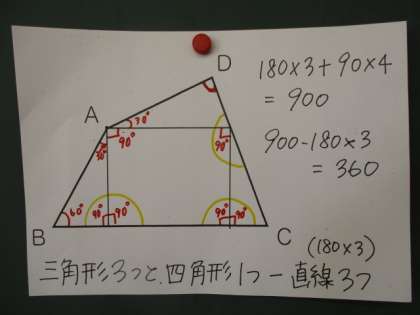 D
180×3+90×4
=900
A
30°
90°
90°
30°
900-180×3
=360
60°
90°
90°
90°
90°
B
C
(180×3)
三角形3つと、四角形1つ-直線3つ